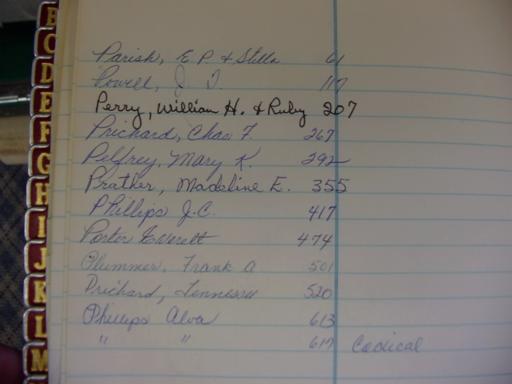 B
C
D
E
F
G
H
I
J
K
L
M
Parish, E. P. & Stella 61
Powell, J. T. 117
Perry, William H. & Ruby 207
Prichard, Chas F. 267
Pelfrey, Mary K. 292
Prather, Madeline E. 355
Phillips J. C. 417
Porter Everett 474
Plummer, Frank A 501
Prichard, Tennessee 520
Phillips Alva 613
" " 617 Codical